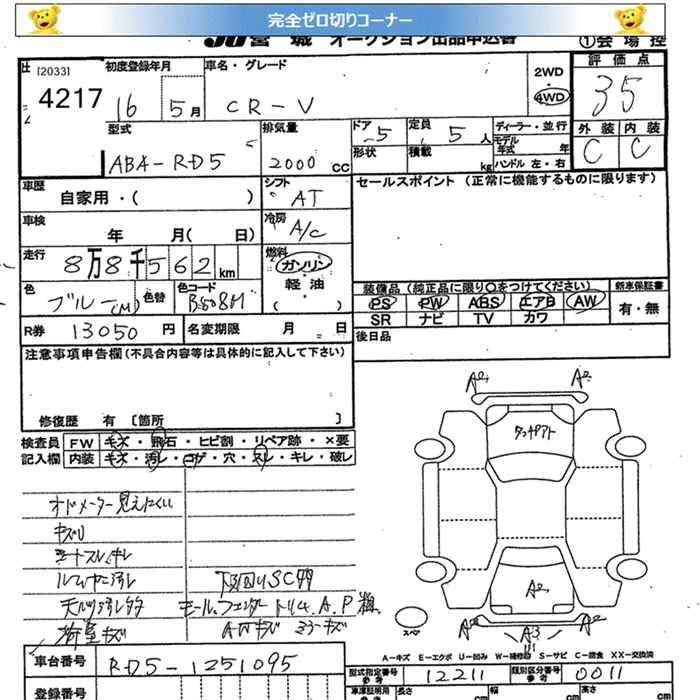 完全ゼロ切りコーナー
JU宮城 オークション出品申込書 ①会場控
[2033]
4217
初度登録年月
16 5月
車名・グレード
CR-V
2WD
・
4WD
評価点
35
型式
ABA-RD5
排気量
2000 CC
ドア 5
定員 5人
形状
積載 kg
ディーラー・並行
モデル年式 年
ハンドル 左・右
外装 内装
C C
車歴
自家用・( )
シフト
AT
セールスポイント (正常に機能するものに限ります)
車検
年 月( 日)
冷房
A/C
走行
8万8千562km
燃料
ガソリン
軽油
( )
色
ブルー(M)
色替
色コード
B508M
装備品 (純正品に限り○をつけてください)
PS PW ABS エアB AW
SR ナビ TV カワ
新車保証書
有・無
R券 13050円
名変期限 月 日
後日品
注意事項申告欄(不具合内容等は具体的に記入して下さい)
修復歴 有 [箇所 ]
検査員記入欄
FW キズ・飛石・ヒビ割・リペア跡・×要
内装 キズ・汚レ・コゲ・穴・スレ・キレ・破レ
オドメーター見えにくい
キズリ
シートスレ キレ
下回りSC替
モール、フェンダートリム、A、P
荷室キズ
AWキズ ミラーキズ
A2 A2
タッチアト
A2
A2 A3 A2
スペア
A-キズ E-エクボ U-凹み W-補修跡 S-サビ C-腐食 XX-交換済
車台番号
RD5-1251095
型式指定番号 参考 12211
類別区分番号 参考 0011
登録番号
車庫証明用 参考 長さ cm 幅 cm 高さ cm